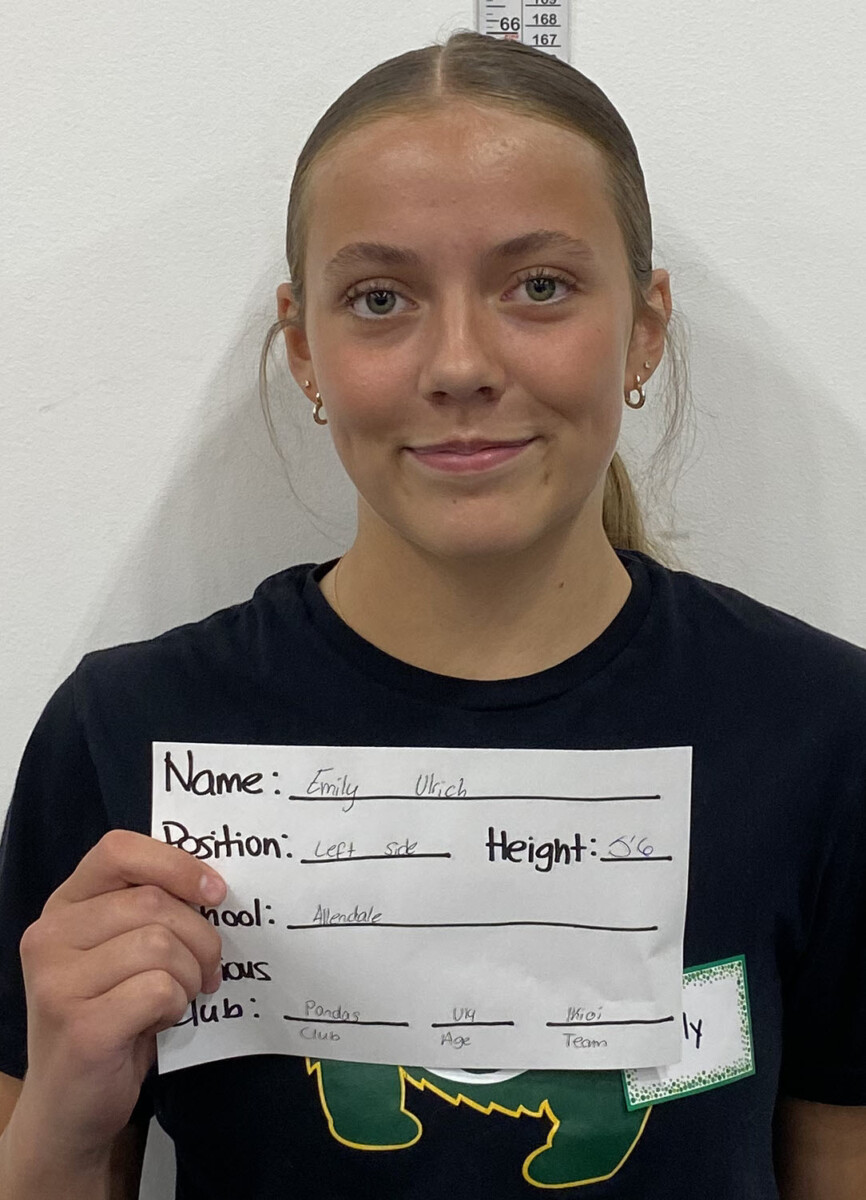 66
168
167
Name: Emily Ulrich
Position: Left Side Height: 5'6
hool: Allendale
ious
Club: Pandas U14
Club Age Team
ly